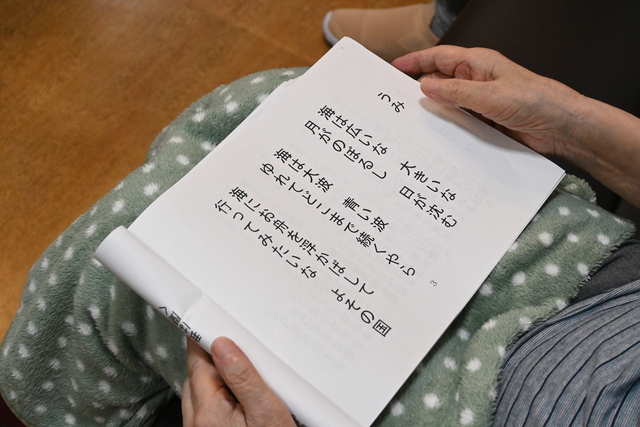 うみ
海は広いな　大きいな
月がのぼるし　日が沈む
海は大波　青い波
ゆれてどこまで続くやら
海にお舟を浮かばして
行ってみたいな　よその国
3